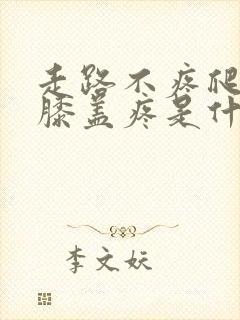 走路不疼爬
膝盖疼是什
李文妖